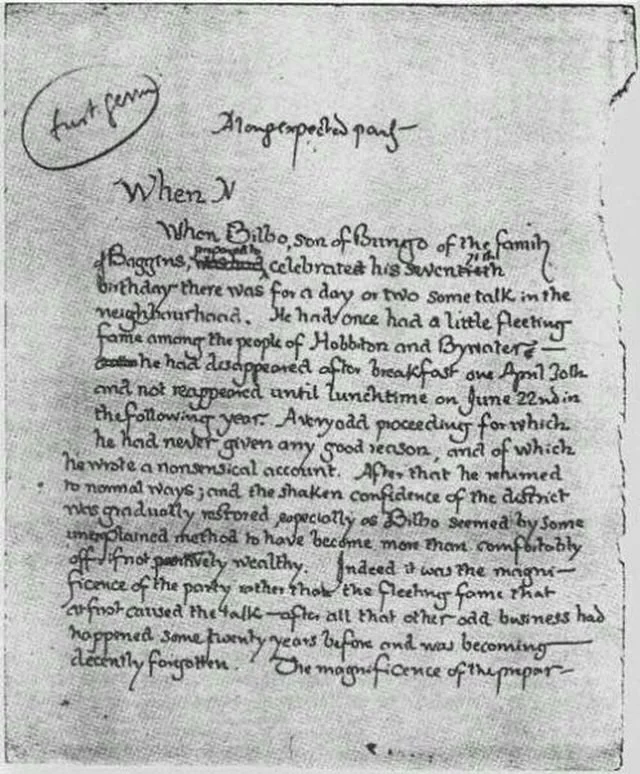 first germ
A long expected party
When N
When Bilbo, son of Bungo of the family
of Baggins, celebrated his seventieth
birthday there was for a day or two some talk in the
neighbourhood. He had once had a little fleeting
fame among the people of Hobbiton and Bywater —
he had disappeared after breakfast one April 30th
and not reappeared until lunchtime on June 22nd in
the following year. A very odd proceeding for which
he had never given any good reason, and of which
he wrote a nonsensical account. After that he returned
to normal ways; and the shaken confidence of the district
was gradually restored, especially as Bilbo seemed by some
unexplained method to have become more than comfortably
off, if not positively wealthy. Indeed it was the magni-
ficence of the party rather than the fleeting fame that
at first caused the talk — after all that other odd business had
happened some twenty years before and was becoming
decently forgotten. The magnificence of the prepar-